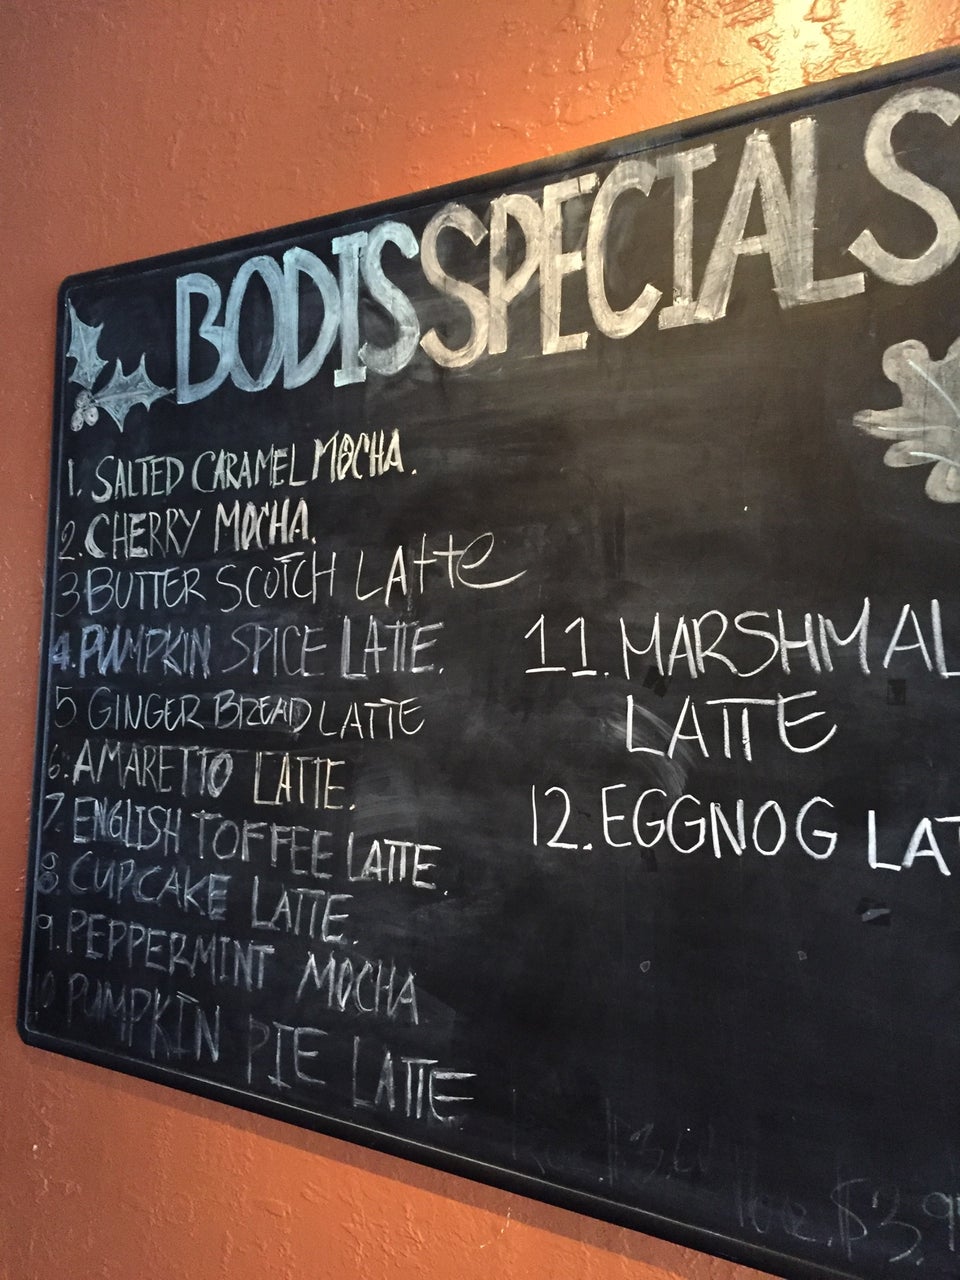 BODIS SPECIALS
1. SALTED CARAMEL MOCHA.
2. CHERRY MOCHA.
3 BUTTER SCOTCH LAtte
4. PUMPKIN SPICE LATTE.
5 GINGER BREAD LATTE
6. AMARETTO LATTE.
7. ENGLISH TOFFEE LATTE.
8. CUPCAKE LATTE.
9. PEPPERMINT MOCHA
10 PUMPKIN PIE LATTE
11. MARSHMAL
LATTE
12. EGGNOG LAT